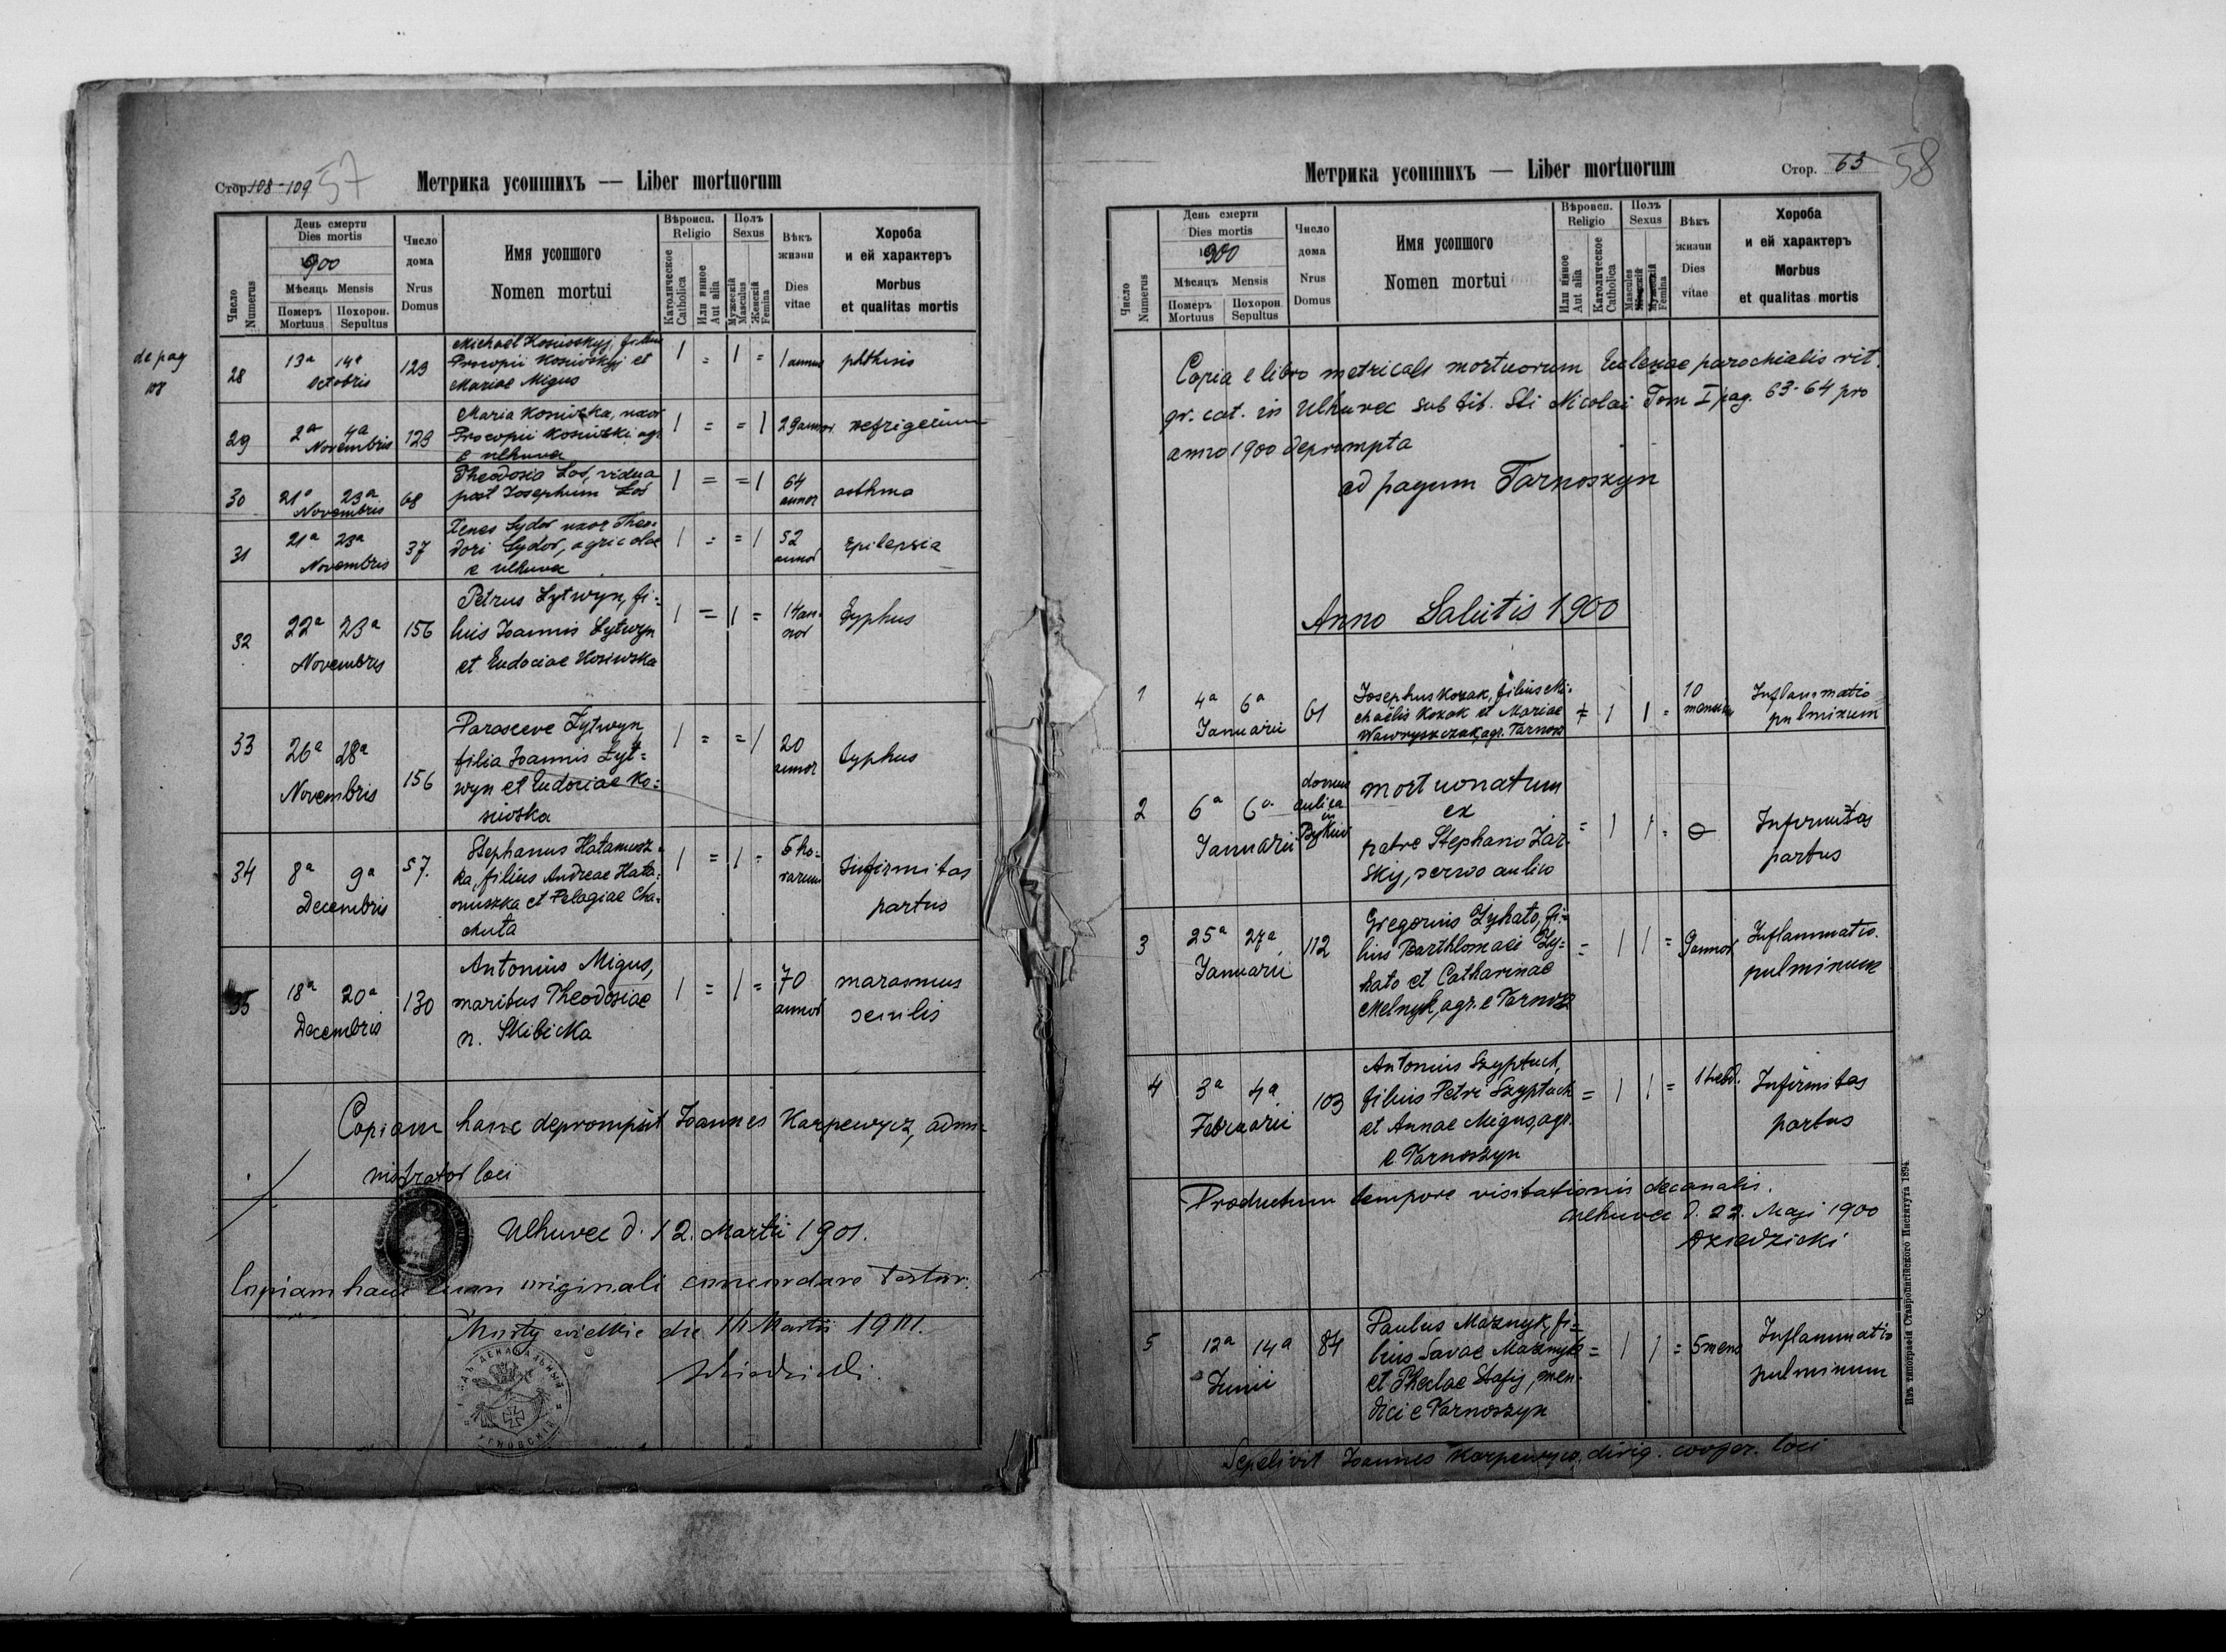 Стор. 108-109 57
Метрика усопшихъ — Liber mortuorum
Число
Numerus
День смерти
Dies mortis
1900
Мѣсяць Mensis
Померъ Похорон.
Mortuus Sepultus
Число
дома
Nrus
Domus
Имя усопшого
Nomen mortui
Вѣроисп.
Religio
Католическое
Catholica
Или инное
Aut alia
Полъ
Sexus
Мужескій
Masculus
Женскій
Femina
Вѣкъ
жизни
Dies
vitae
Хороба
и ей характеръ
Morbus
et qualitas mortis
de pag
108
28 13ª 14ª Octobris 123
Michaël Kosiwskyj, filius
Procopii Kosiwskyj et
Mariae Migus
1 = 1 = 1 annus phthisis
29 2ª 4ª Novembris 123
Maria Kosiwska, uxor
Procopii Kosiwski agr.
e Ulhuvec
1 = = 1 29 annor. refrigerium
30 21ª 23ª Novembris 68
Theodosia Łoś, vidua
post Josephum Łoś
1 = = 1 64 annor asthma
31 21ª 23ª Novembris 37
Xenea Sydor uxor Theo=
dori Sydor, agricolae
e Ulhuvec
1 = = 1 52 annor Epilepsia
32 22ª 23ª Novembris 156
Petrus Lytwyn, fi=
lius Ioannis Lytwyn
et Eudociae Kosiwska
1 = 1 = 14 an=
nor typhus
33 26ª 28ª Novembris 156
Parasceve Lytwyn
filia Ioannis Lyt=
wyn et Eudociae Ko=
siwska
1 = = 1 20 annor typhus
34 8ª 9ª Decembris 57.
Stephanus Hałamusz=
ka, filius Andreae Hała=
muszka et Pelagiae Cha=
chuła
1 = 1 = 5 ho=
rarum Infirmitas
partus
35 18ª 20ª Decembris 130
Antonius Migus,
maritus Theodosiae
n. Skibicka
1 = 1 = 70 annor marasmus
senilis
Copiam hanc deprompsit Ioannes Karpewycz, admi=
nistrator loci
Ulhuvec d. 12. Martii 1901.
Copiam hanc cum originali concordare testor.
Mosty wielkie die 14 Martii 1901.
ДЕКАНАЛЬНЫЙ
УГНОВСКІЙ
Метрика усопшихъ — Liber mortuorum
Стор. 63 58
Число
Numerus
День смерти
Dies mortis
1900
Мѣсяцъ Mensis
Померъ Похорон.
Mortuus Sepultus
Число
дома
Nrus
Domus
Имя усопшого
Nomen mortui
Вѣроисп.
Religio
Или инное
Aut alia
Католическое
Catholica
Полъ
Sexus
Masculus
Мужескій
Femina
Вѣкъ
жизни
Dies
vitae
Хороба
и ей характеръ
Morbus
et qualitas mortis
Copia e libro metricali mortuorum Ecclesiae parochialis rit.
gr. cat. in Ulhuvec sub tit. Sti Nicolai Tom I pag. 63-64 pro
anno 1900 deprompta
ad pagum Tarnoszyn
Anno Salutis 1900
1 4ª 6ª Januarii 61
Josephus Kozak, filius Mi=
chaëlis Kozak et Mariae
Wawryszczak, agr. Tarnosz
= 1 1 = 10
mensium Inflammatio
pulminum
2 6ª 6ª Januarii domus
aulica
in
mortuonatum
ex
patre Stephano Zar=
skij, servo aulico
= 1 1 = 0 Infirmitas
partus
3 25ª 27ª Januarii 112
Gregorius Zyhato, fi=
lius Barthlomaei Zy=
hato et Catharinae
Melnyk, agr. e Tarnosz
= 1 1 = 9 annor Inflammatio.
pulminum
4 3ª 4ª Februarii 103
Antonius Szyptuch,
filius Petri Szyptuch
et Annae Migus, agr.
e Tarnoszyn
= 1 1 = 1 hebd. Infirmitas
partus
Productum tempore visitationis decanalis.
Ulhuvec d. 22. Maji 1900
Dziedzicki
5 12ª 14ª Junii 84
Paulus Maznyk, fi=
lius Savae Maznyk
et Theclae Stasij, men=
dici e Tarnoszyn
= 1 1 = 5 mens Inflammatio
pulminum
Sepelivit Ioannes Karpewycz, dirig. cooper. loci
Изъ типографіи Ставропигійского Института 1894.